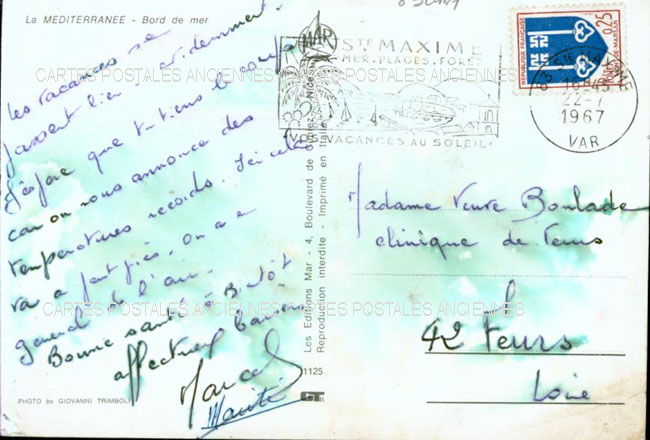 La MEDITERRANEE - Bord de mer
Les vacances se
passent bien évidemment.
J'espère que t-tiens le coup
car on nous annonce des
températures records. Ici cela
va a peut près. On a e
grand de l'air.
Bonne santé. Bientôt
affectueux baisers
Marcel
PHOTO by GIOVANNI TRIMBOLI
Les Editions Mar - 4, Boulevard de
Reproduction interdite - Imprimé en Italie
1125
MAR
STE MAXIME
MER. PLAGES. FORET
VOS VACANCES AU SOLEIL
REPUBLIQUE FRANÇAISE
0,25
18H45
22-7
1967
VAR
Madame Veuve Boulade
clinique de Feurs
42 Feurs
Loire
CARTES POSTALES ANCIENNES
CARTES POSTALES ANCIENNES
CARTES POSTALES ANCIENNES
CARTES POSTALES ANCIENNES